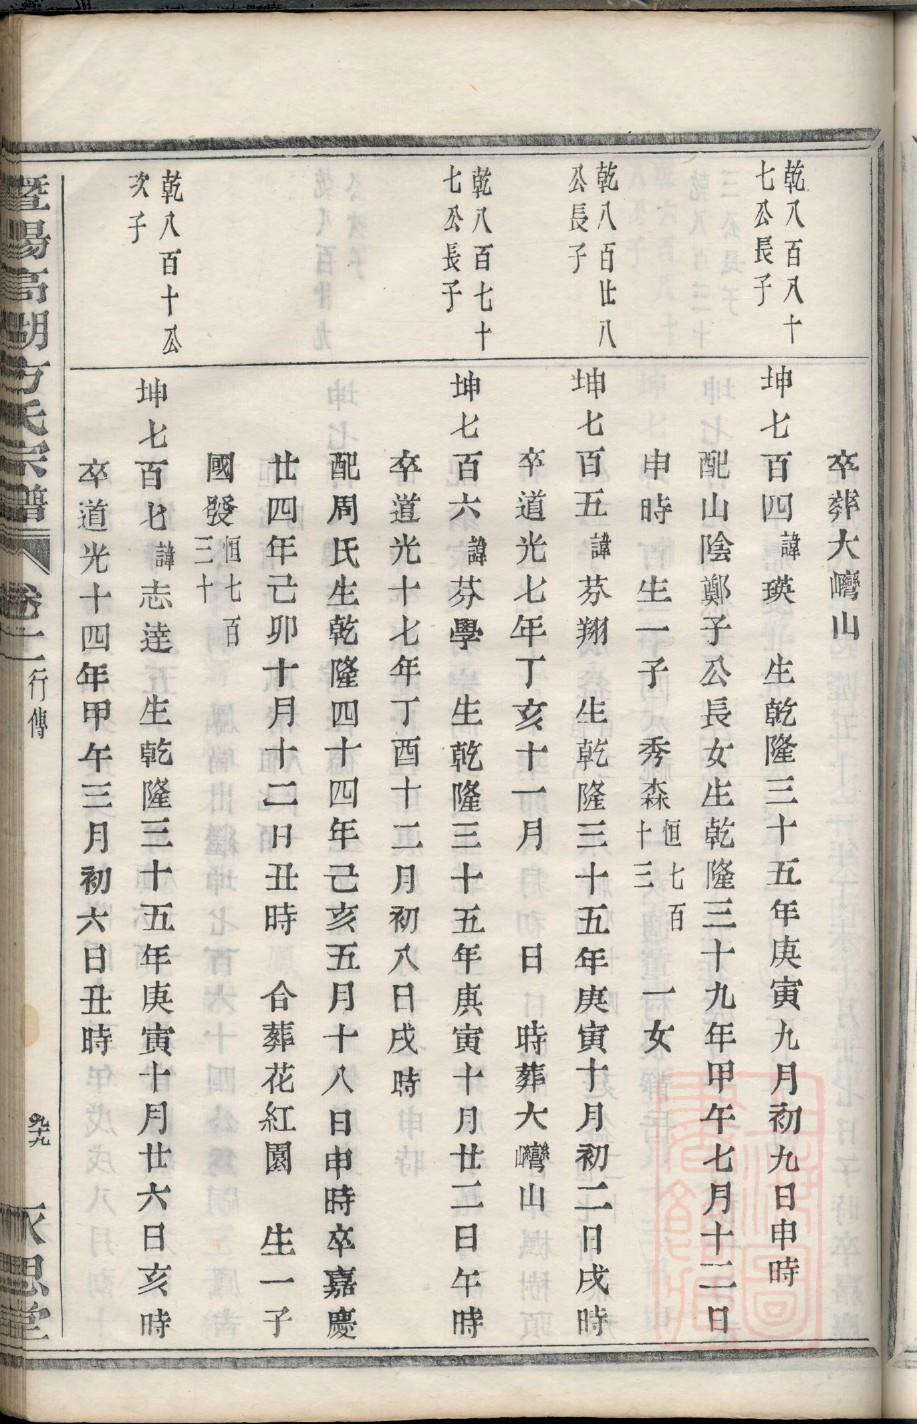 卒葬大巒山
乾八百八十
七公長子
坤七百四諱瑛 生乾隆三十五年庚寅九月初九日申時
配山陰鄭子公長女生乾隆三十九年甲午七月十二日
申時 生一子 秀森恒七百十三 一女
乾八百廿八
公長子
坤七百五諱芬翔 生乾隆三十五年庚寅十月初二日戌時
卒道光七年丁亥十一月 日 時葬大巒山
乾八百七十
七公長子
坤七百六諱芬學 生乾隆三十五年庚寅十月廿二日午時
卒道光十七年丁酉十二月初八日戌時
配周氏生乾隆四十四年己亥五月十八日申時卒嘉慶
廿四年己卯十月十二日丑時 合葬花紅園 生一子
國發恒七百三十
乾八百十公
次子
坤七百七諱志達 生乾隆三十五年庚寅十月廿六日亥時
卒道光十四年甲午三月初六日丑時
暨陽高湖方氏宗譜 卷十一 行傳 九十九 永思堂